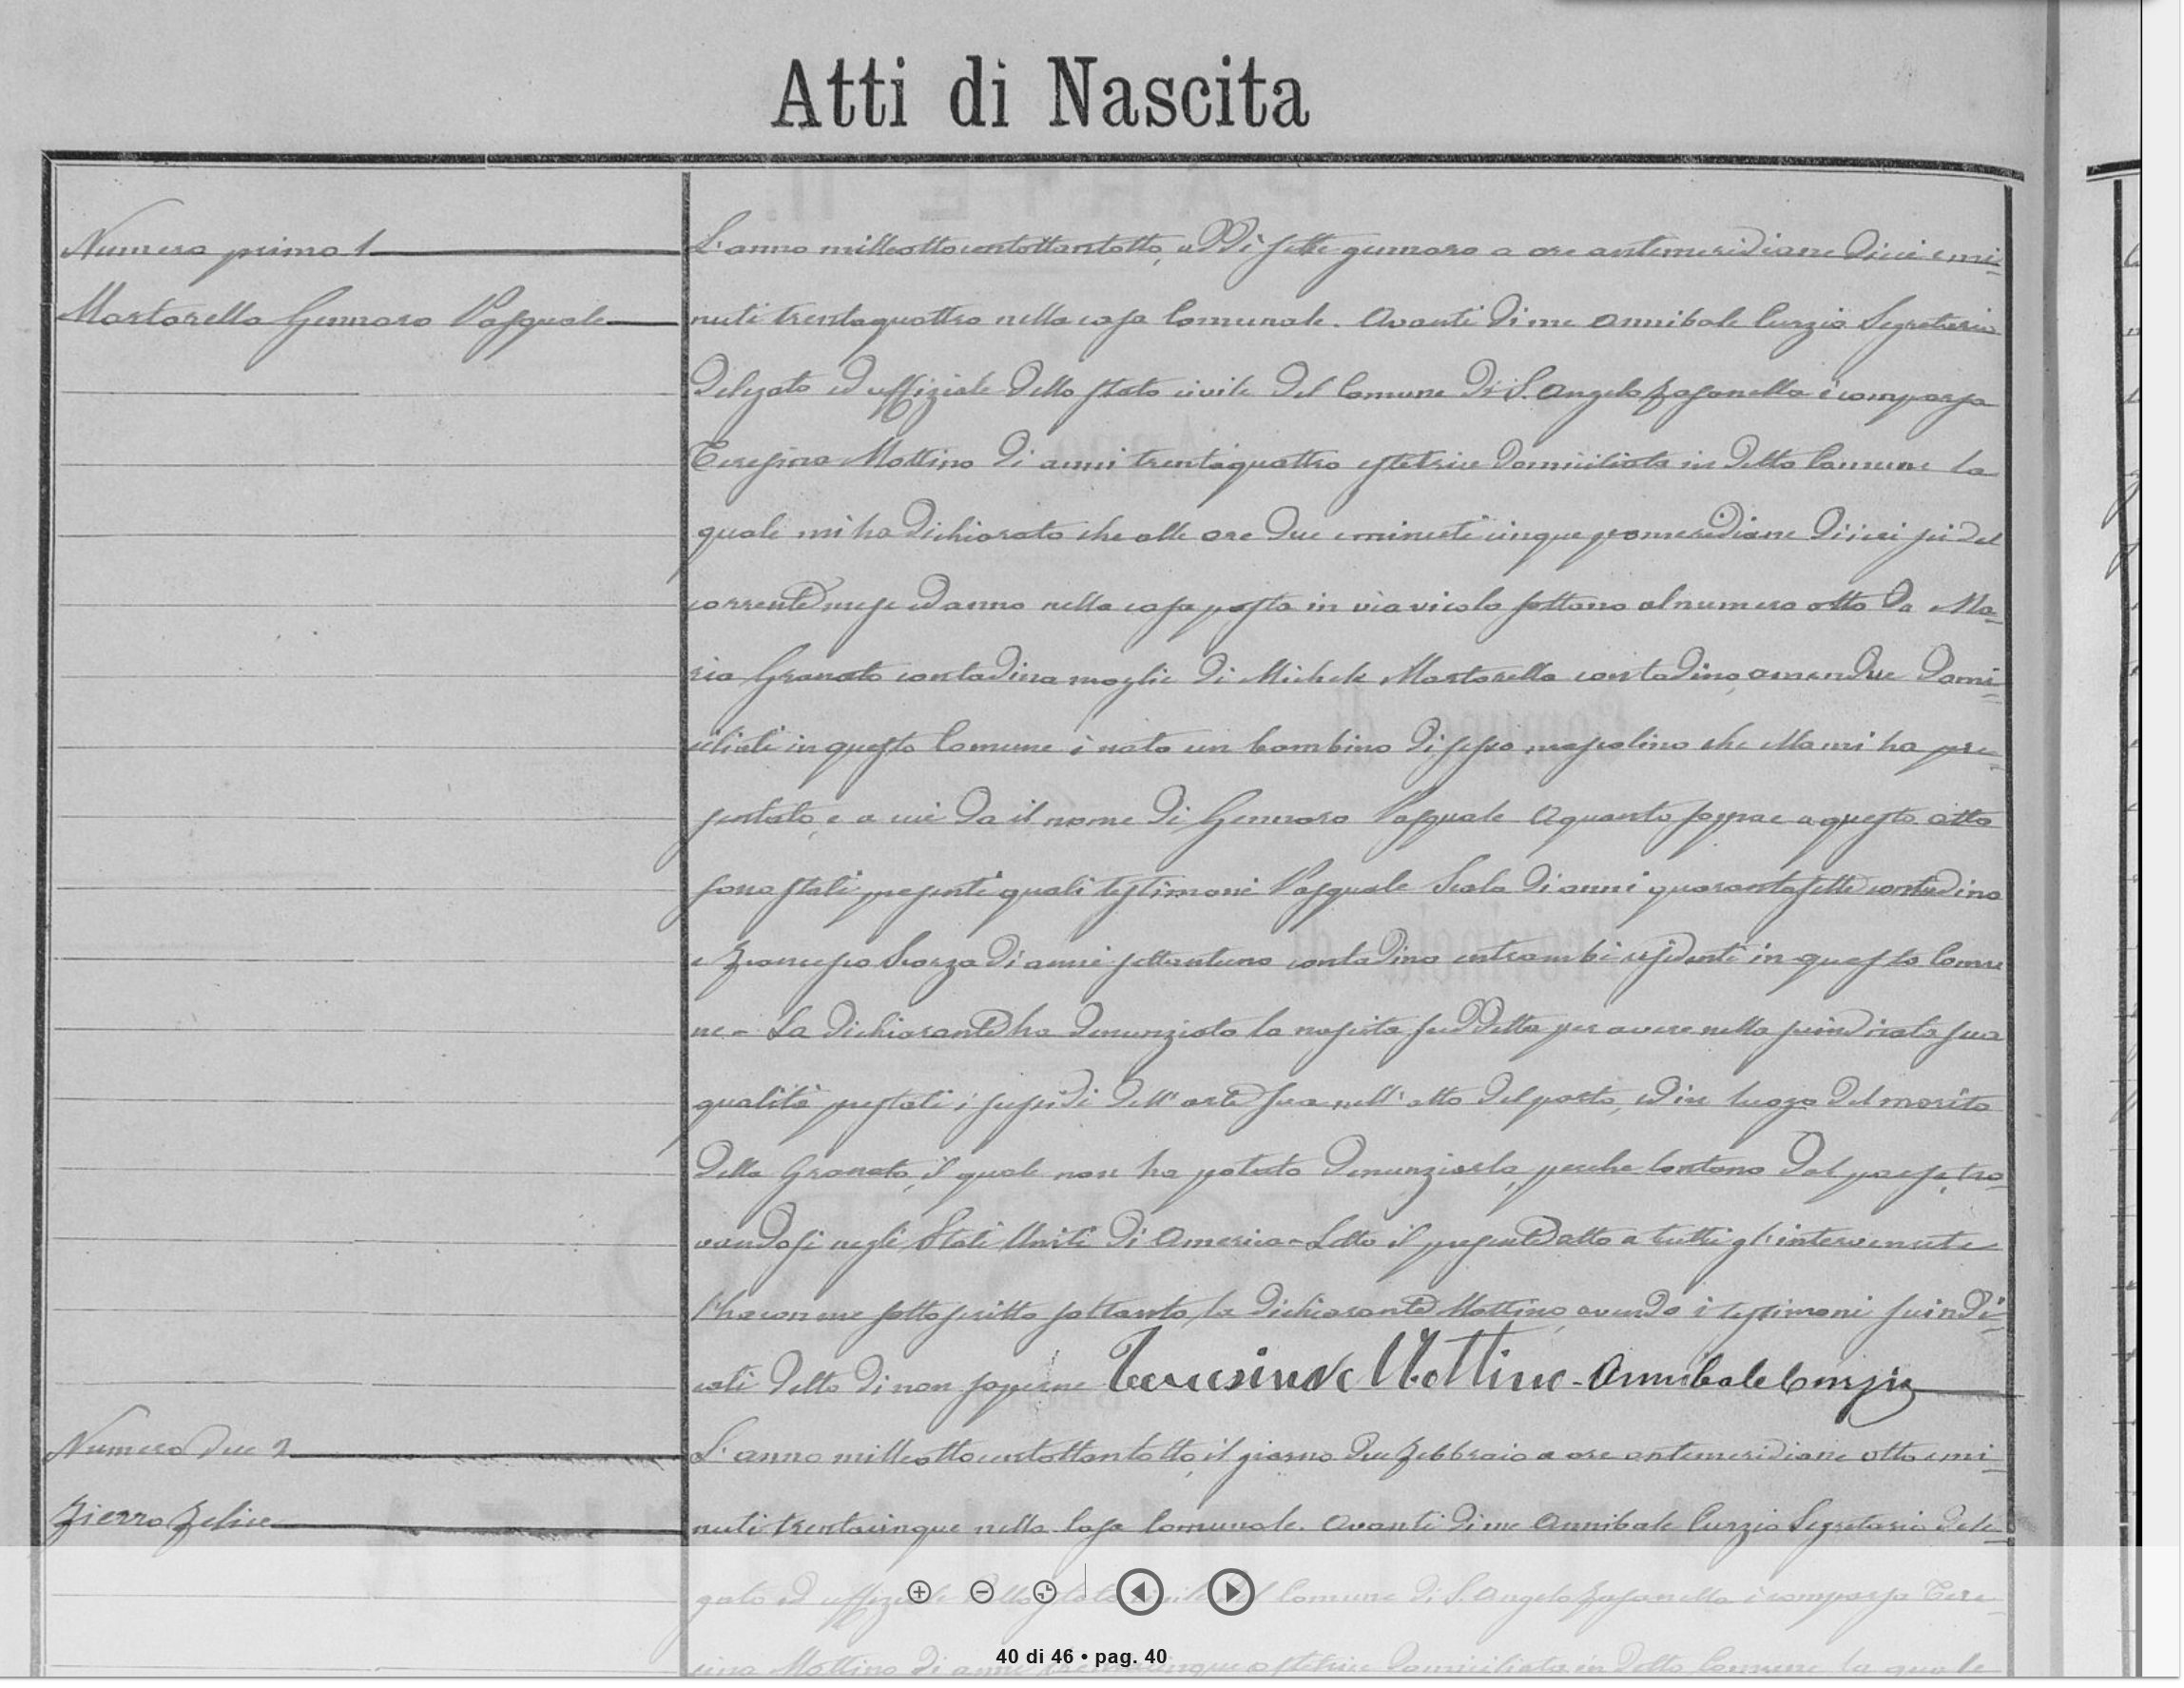 Atti di Nascita
Numero primo 1
Martorella Gennaro Pasquale
L'anno milleottocentottantotto, addì sette gennaro a ore antemeridiane dieci e mi-
nuti trentaquattro nella casa Comunale. Avanti di me Annibale Curzio Segretario
delegato ed uffiziale dello stato civile del Comune di S. Angelo Fasanella è comparsa
Teresina Mottino di anni trentaquattro ostetrice domiciliata in detto Comune la
quale mi ha dichiarato che alle ore due e minuti cinque pomeridiane di ieri sei del
corrente mese ed anno nella casa posta in via vicolo sottano al numero otto da Ma-
ria Granato contadina moglie di Michele Martorella contadino, amendue domi-
ciliati in questo Comune è nato un bambino di sesso mascolino che ella mi ha pre-
sentato, e a cui da il nome di Gennaro Pasquale A quanto sopra e a questo atto
sono stati presenti quali testimoni Pasquale Scala di anni quarantasette contadino
e Francesco Scorza di anni settantuno contadino entrambi residenti in questo Comu
ne - La dichiarante ha denunziato la nascita suddetta per avere nella suindicata sua
qualità prestati i sussidi dell'arte sua nell'atto del parto, ed in luogo del marito
della Granato, il quale non ha potuto denunziarla, perche lontano dal paese, tro-
vandosi negli Stati Uniti di America - Letto il presente atto a tutti gl'intervenuti
l'ha con me sottoscritto soltanto la dichiarante Mottino, avendo i testimoni suindi-
cati detto di non saperne Teresina Mottino - Annibale Curzio
Numero due 2
Fierro Felice
L'anno milleottocentottantotto, il giorno due Febbraio a ore antemeridiane otto e mi-
nuti trentacinque nella Casa Comunale. Avanti di me Annibale Curzio Segretario dele-
gato ed uffiziale dello stato civile del Comune di S. Angelo Fasanella è comparsa Tere-
sina Mottino di anni trentacinque ostetrice domiciliata in detto Comune la quale
40 di 46 • pag. 40